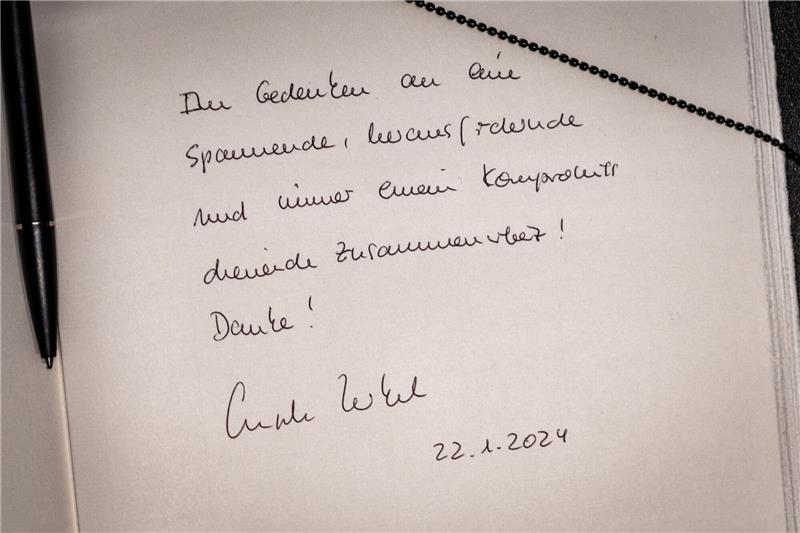 Im Gedenken an eine
spannende, herausfordernde
und immer einem Kompromiss
dienende Zusammenarbeit!
Danke!
Angela Merkel
22.1.2024